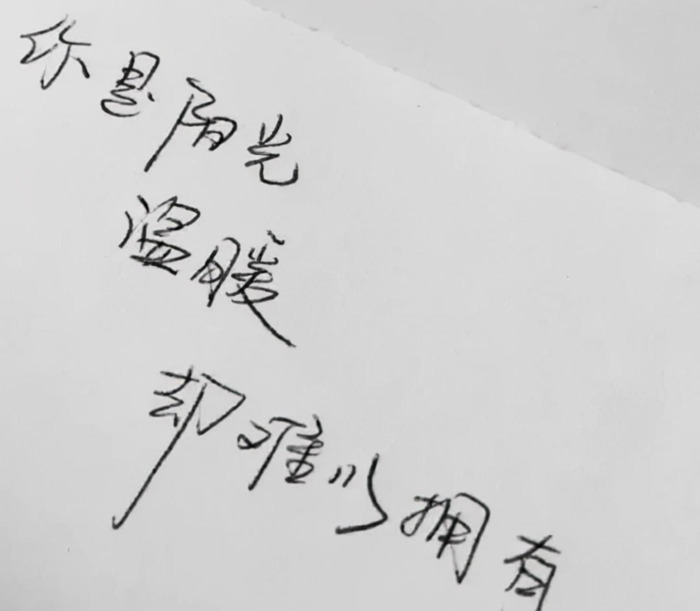 你是阳光
温暖
却难以拥有